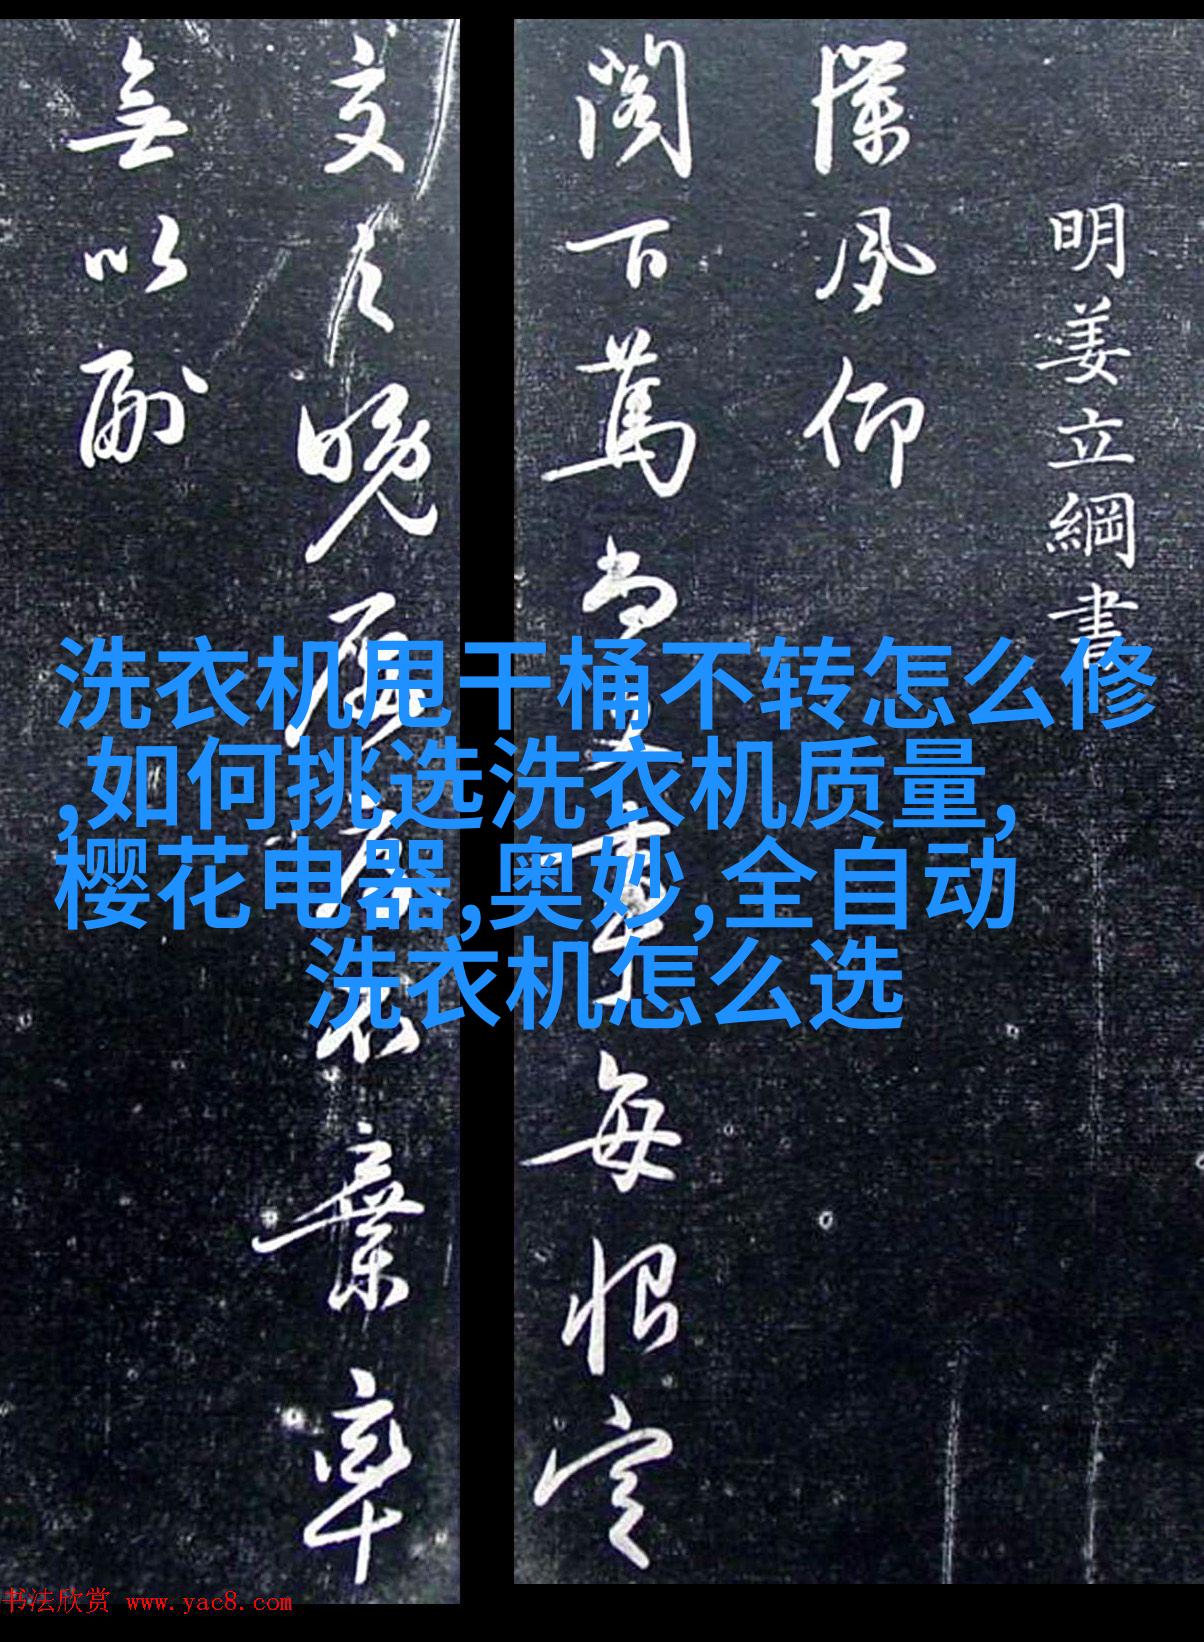 明姜立綱書
夙仰
閣百萬尚每恨
交晚棄率
無以副
洗衣机甩干桶不转怎么修
,如何挑选洗衣机质量,
樱花电器,奥妙,全自动
洗衣机怎么选
书法欣赏 www.yac8.com